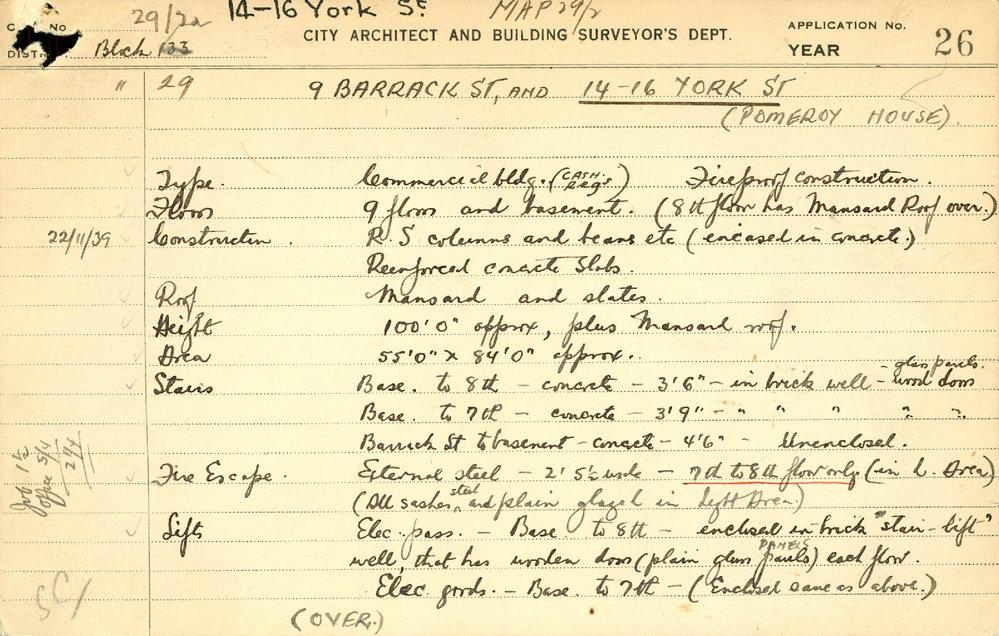 29/2a 14-16 York St MAP 29/2
CITY ARCHITECT AND BUILDING SURVEYOR'S DEPT.
APPLICATION NO.
YEAR 26
Block 133
" 29 9 BARRACK ST, AND 14-16 YORK ST
(POMEROY HOUSE).
Type. Commercial bldg. (CASH & regs) Fireproof construction.
Floors 9 floors and basement. (8th floor has Mansard Roof over.)
22/11/39 Construction. R.S columns and beams etc (encased in concrete.)
Reenforced concrete Slabs.
Roof Mansard and slates.
Height 100'0" approx, plus Mansard roof.
Area 55'0" x 84'0" approx.
- glass panels.
Stairs Base. to 8th - concrete - 3'6" - in brick well - wood doors
Base. to 7th - concrete - 3'9" - " " " " ".
Barrack St to basement - concrete - 4'6" - Unenclosed.
Job 1 1/2
Office 3/4
2 1/4
Fire Escape External steel - 2' 5½ wide - 7th to 8th floor only (in L. Area)
(All sashes steel and plain glazed in Light Area)
Lifts Elec. pass. - Base to 8th - enclosed in brick "stair-lift"
well, that has wooden doors (plain glass panels PANELS) each floor.
Elec goods. - Base. to 7th - (Enclosed same as above.)
(OVER.)